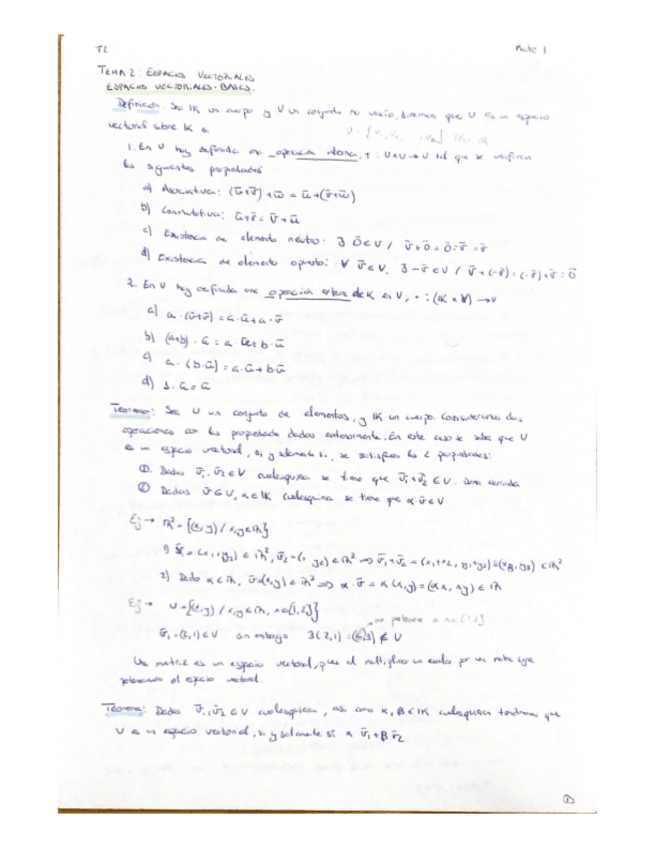 T2
Mate 1
TEMA 2: ESPACIOS VECTORIALES
ESPACIOS VECTORIALES. BASES.
Definición: Sea IK un cuerpo y V un conjunto no vacío, diremos que V es un espacio
vectorial sobre IK si:
1. En V hay definida una operación interna, + : V×V→V tal que se verifican
las siguientes propiedades
a) Asociativa: (ū+v̄)+w̄ = ū+(v̄+w̄)
b) Conmutativa: ū+v̄ = v̄+ū
c) Existencia de elemento neutro: ∃ ō∈V / v̄+ō = ō+v̄ = v̄
d) Existencia de elemento opuesto: ∀ v̄∈V, ∃ -v̄∈V / v̄+(-v̄) = (-v̄)+v̄ = ō
2. En V hay definida una operación externa de K en V, · : (IK×V) →V
a) a·(ū+v̄) = a·ū+a·v̄
b) (a+b)·ū = a·ū+b·ū
c) a·(b·ū) = a·ū+b·ū
d) 1·ū = ū
Teorema: Sea V un conjunto de elementos, y IK un cuerpo. Consideramos dos
operaciones con las propiedades dadas anteriormente. En este caso se sabe que V
es un espacio vectorial, si y solamente si, se satisfacen las 2 propiedades:
① Dados v̄₁, v̄₂∈V cualesquiera se tiene que v̄₁+v̄₂∈V.
② Dados v̄∈V, α∈IK cualesquiera se tiene que α·v̄∈V
Ej→ IR²={(x,y)/x,y∈IR}
2) Dado α∈IR, v̄=(x,y)∈IR² ⇒ α·v̄ = α(x,y)=(αx, αy)∈IR
Ej→ V={(x,y)/x,y∈IR, x∈[1,2]}
no pertenece a x∈[1,2]
v̄₁=(2,1)∈V sin embargo 3(2,1)=(6,3)∉V
Una matriz es un espacio vectorial, pues al multiplicar un escalar por una matriz sigue
perteneciendo al espacio vectorial.
Teorema: Dados v̄₁,v̄₂∈V cualesquiera, así como α,β∈IK cualesquiera tendremos que
V es un espacio vectorial, si y solamente si α v̄₁+β v̄₂
①